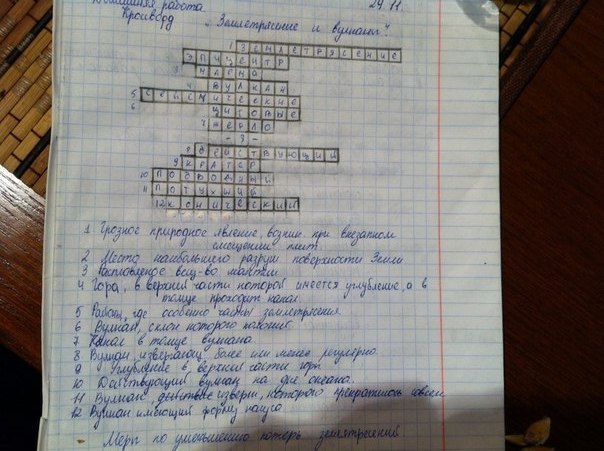 Домашняя работа 29.11.
Кроссворд "Землетрясение и вулканы".
1 ЗЕМЛЕТРЯСЕНИЕ
2 ЭПИЦЕНТР
3 МАГМА
4 ВУЛКАН
5 СЕЙСМИЧЕСКИЕ
6 ЩИТОВЫЕ
7 ЖЕРЛО
- 3 -
8 ДЕЙСТВУЮЩИЙ
9 КРАТЕР
10 ПОДВОДНЫЙ
11 ПОТУХШИЙ
12 КОНИЧЕСКИЙ
1 Грозное природное явление, возник. при внезапном
смещении плит.
2 Место наибольшего разруш поверхности Земли
3 Расплавленое вещ-во мантии
4 Гора, в верхней части которой имеется углубление, а в
толще проходит канал.
5 Районы, где особенно часты землетрясения
6 Вулкан, склон которого пологий
7 Канал в толще вулкана
8 Вулкан, извергающ. более или менее регулярно.
9 Углубление в верхней части горы
10 Действующий вулкан на дне океана.
11 Вулкан, действие изверж, которого прекратилось совсем
12 Вулкан имеющий форму конуса
Меры по уменьшению потерь землятресений